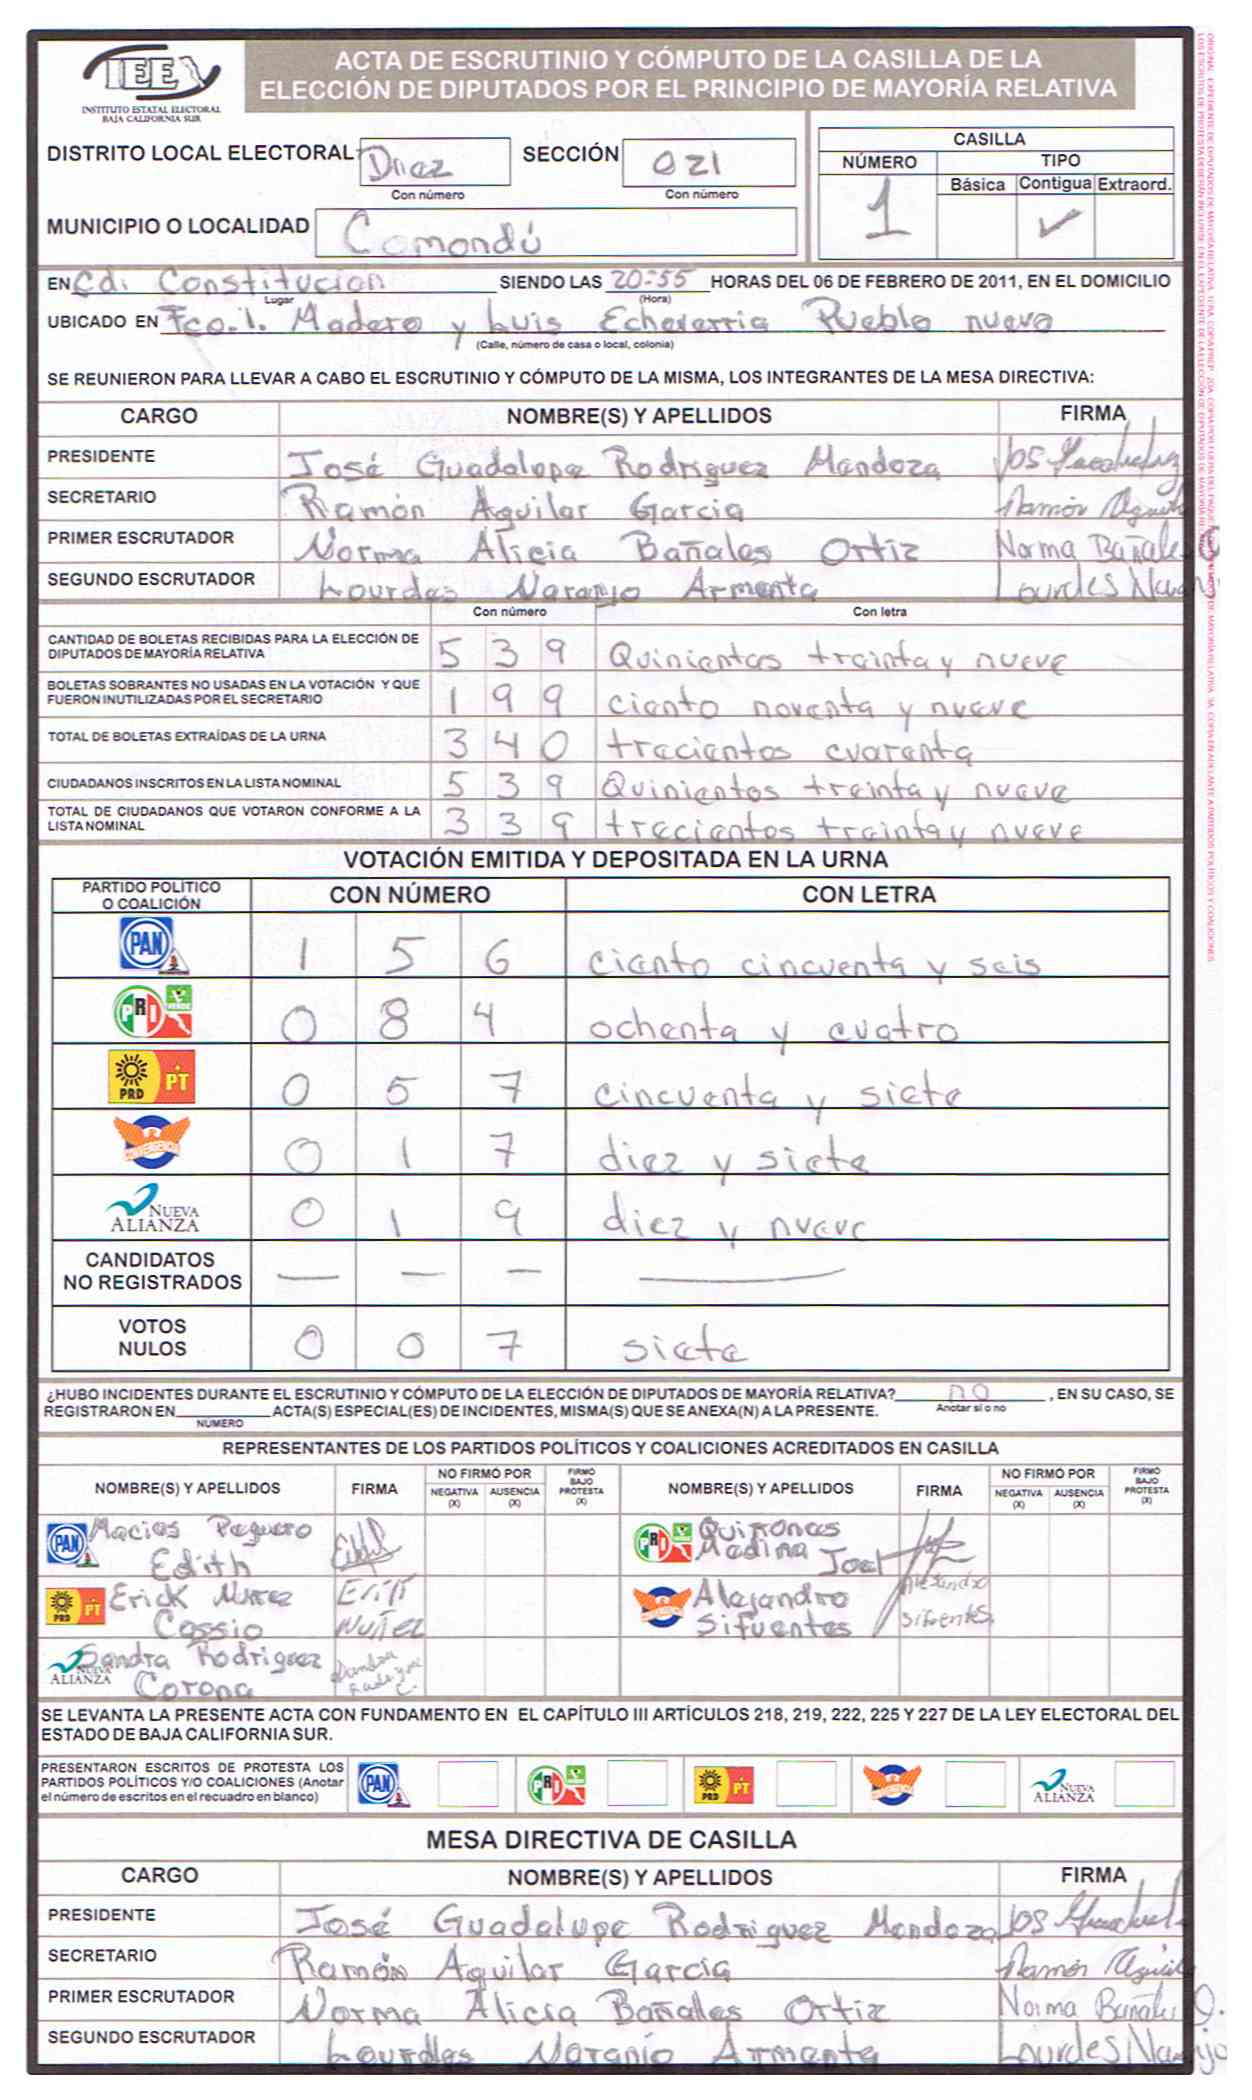 IEEX
INSTITUTO ESTATAL ELECTORAL
BAJA CALIFORNIA SUR
ACTA DE ESCRUTINIO Y CÓMPUTO DE LA CASILLA DE LA
ELECCIÓN DE DIPUTADOS POR EL PRINCIPIO DE MAYORÍA RELATIVA
DISTRITO LOCAL ELECTORAL Diez SECCIÓN 021
Con número Con número
MUNICIPIO O LOCALIDAD Comondú
CASILLA
NÚMERO TIPO
Básica Contigua Extraord.
1 ✓
EN Cd. Constitucion SIENDO LAS 20:55 HORAS DEL 06 DE FEBRERO DE 2011, EN EL DOMICILIO
Lugar (Hora)
UBICADO EN Fco. I. Madero y Luis Echeverria Pueblo nuevo
(Calle, número de casa o local, colonia)
SE REUNIERON PARA LLEVAR A CABO EL ESCRUTINIO Y CÓMPUTO DE LA MISMA, LOS INTEGRANTES DE LA MESA DIRECTIVA:
CARGO NOMBRE(S) Y APELLIDOS FIRMA
PRESIDENTE José Guadalupe Rodriguez Mendoza
SECRETARIO Ramón Aguilar Garcia Ramón Aguilar
PRIMER ESCRUTADOR Norma Alicia Bañales Ortiz Norma Bañales O
SEGUNDO ESCRUTADOR Lourdes Naranjo Armenta Lourdes Naranjo
Con número Con letra
CANTIDAD DE BOLETAS RECIBIDAS PARA LA ELECCIÓN DE
DIPUTADOS DE MAYORÍA RELATIVA 5 3 9 Quinientos treinta y nueve
BOLETAS SOBRANTES NO USADAS EN LA VOTACIÓN Y QUE
FUERON INUTILIZADAS POR EL SECRETARIO 1 9 9 ciento noventa y nueve
TOTAL DE BOLETAS EXTRAÍDAS DE LA URNA 3 4 0 trecientos cuarenta
CIUDADANOS INSCRITOS EN LA LISTA NOMINAL 5 3 9 Quinientos treinta y nueve
TOTAL DE CIUDADANOS QUE VOTARON CONFORME A LA
LISTA NOMINAL 3 3 9 trecientos treinta y nueve
VOTACIÓN EMITIDA Y DEPOSITADA EN LA URNA
PARTIDO POLÍTICO
O COALICIÓN CON NÚMERO CON LETRA
PAN 1 5 6 ciento cincuenta y seis
PRI VERDE 0 8 4 ochenta y cuatro
PRD PT 0 5 7 cincuenta y siete
CONVERGENCIA 0 1 7 diez y siete
NUEVA ALIANZA 0 1 9 diez y nueve
CANDIDATOS
NO REGISTRADOS — — — —
VOTOS
NULOS 0 0 7 siete
¿HUBO INCIDENTES DURANTE EL ESCRUTINIO Y CÓMPUTO DE LA ELECCIÓN DE DIPUTADOS DE MAYORÍA RELATIVA? no , EN SU CASO, SE
Anotar si o no
REGISTRARON EN ACTA(S) ESPECIAL(ES) DE INCIDENTES, MISMA(S) QUE SE ANEXA(N) A LA PRESENTE.
NÚMERO
REPRESENTANTES DE LOS PARTIDOS POLÍTICOS Y COALICIONES ACREDITADOS EN CASILLA
NOMBRE(S) Y APELLIDOS FIRMA NO FIRMÓ POR NEGATIVA (X) AUSENCIA (X) FIRMÓ BAJO PROTESTA (X) NOMBRE(S) Y APELLIDOS FIRMA NO FIRMÓ POR NEGATIVA (X) AUSENCIA (X) FIRMÓ BAJO PROTESTA (X)
PAN Macias Peguero
Edith
PRI VERDE Quiñones
Medina Joel
PRD PT Erick Nuñez
Cossio Erik Nuñez
CONVERGENCIA Alejandro
Sifuentes Alejandro Sifuentes
NUEVA ALIANZA Sandra Rodriguez
Corona Sandra Rodriguez C.
SE LEVANTA LA PRESENTE ACTA CON FUNDAMENTO EN EL CAPÍTULO III ARTÍCULOS 218, 219, 222, 225 Y 227 DE LA LEY ELECTORAL DEL
ESTADO DE BAJA CALIFORNIA SUR.
PRESENTARON ESCRITOS DE PROTESTA LOS
PARTIDOS POLÍTICOS Y/O COALICIONES (Anotar
el número de escritos en el recuadro en blanco)
PAN PRI VERDE PRD PT CONVERGENCIA NUEVA ALIANZA
MESA DIRECTIVA DE CASILLA
CARGO NOMBRE(S) Y APELLIDOS FIRMA
PRESIDENTE José Guadalupe Rodriguez Mendoza
SECRETARIO Ramón Aguilar Garcia Ramón Aguilar
PRIMER ESCRUTADOR Norma Alicia Bañales Ortiz Norma Bañales O.
SEGUNDO ESCRUTADOR Lourdes Naranjo Armenta Lourdes Naranjo